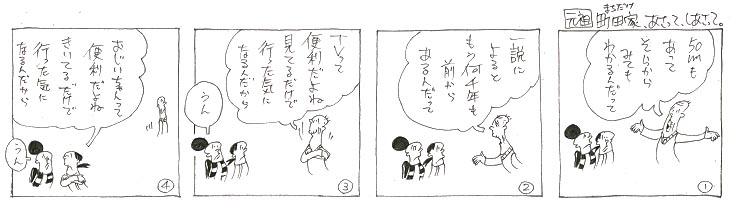 まちだけ
元祖 町田家、あさって、しあさって。
50mも
あって
そらから
みても
わかるんだって
①
一説に
よると
もう何千年も
前から
あるんだって
②
TVって
便利だよね
見てるだけで
行った気に
なるんだから
うん
③
おじいちゃんって
便利だよね
きいてるだけで
行った気に
なるんだから
うん
④